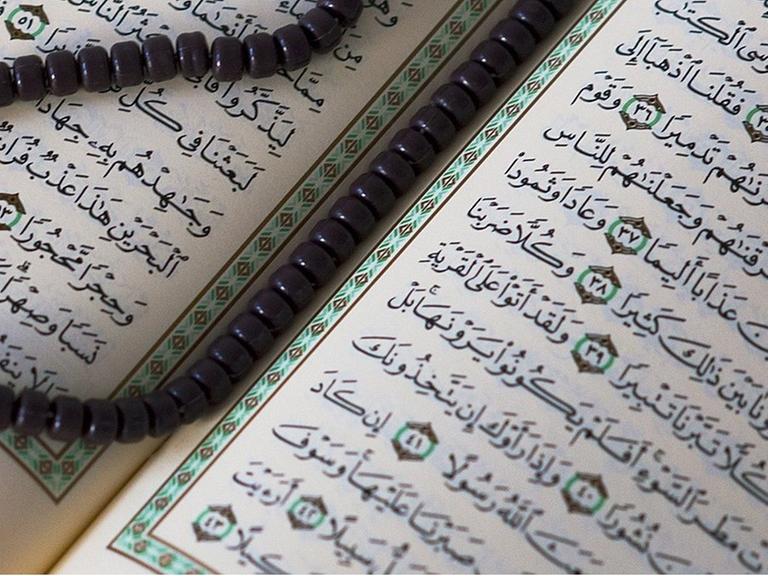 مُوسَى ٱلْكِتَٰبَ
فَقُلْنَا ٱذْهَبَآ إِلَى
تَدْمِيرًا ٣٦ وَقَوْمَ
وَجَعَلْنَٰهُمْ لِلنَّاسِ
عَذَابًا أَلِيمًا ٣٧ وَعَادًا وَثَمُودَا۟
بَيْنَ ذَٰلِكَ كَثِيرًا ٣٨ وَكُلًّا ضَرَبْنَا
كُلًّا تَبَّرْنَا تَتْبِيرًا ٣٩ وَلَقَدْ أَتَوْا۟ عَلَى ٱلْقَرْيَةِ
مَطَرَ ٱلسَّوْءِ أَفَلَمْ يَكُونُوا۟ يَرَوْنَهَا بَلْ
نُشُورًا ٤٠ وَإِذَا رَأَوْكَ إِن يَتَّخِذُونَكَ
ٱللَّهُ رَسُولًا ٤١ إِن كَادَ
صَبَرْنَا عَلَيْهَا وَسَوْفَ
سَبِيلًا ٤٢ أَرَءَيْتَ
٤٣
وَهُوَ
مِنَ
مِمَّا أَنْعَٰمًا
لِيَذَّكَّرُوا۟ ٱلنَّاسِ
لَبَعَثْنَا فِى كُلِّ ٥١
وَجَٰهِدْهُم بِهِۦ جِهَادًا
ٱلْبَحْرَيْنِ هَٰذَا عَذْبٌ فُرَاتٌ
وَحِجْرًا مَّحْجُورًا ٥٣
نَسَبًا وَصِهْرًا
لَا